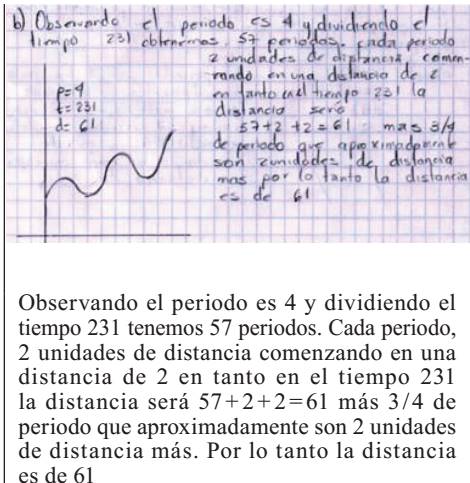 b) Observando el periodo es 4 y dividiendo el
tiempo 231 obtenemos 57 periodos. cada periodo
2 unidades de distancia comen-
zando en una distancia de 2
en tanto en el tiempo 231 la
distancia será
57+2+2=61 mas 3/4
de periodo que aproximadamente
son 2 unidades de distancia
mas por lo tanto la distancia
es de 61
p=4
t=231
d=61
Observando el periodo es 4 y dividiendo el
tiempo 231 tenemos 57 periodos. Cada periodo,
2 unidades de distancia comenzando en una
distancia de 2 en tanto en el tiempo 231
la distancia será 57+2+2=61 más 3/4 de
periodo que aproximadamente son 2 unidades
de distancia más. Por lo tanto la distancia
es de 61